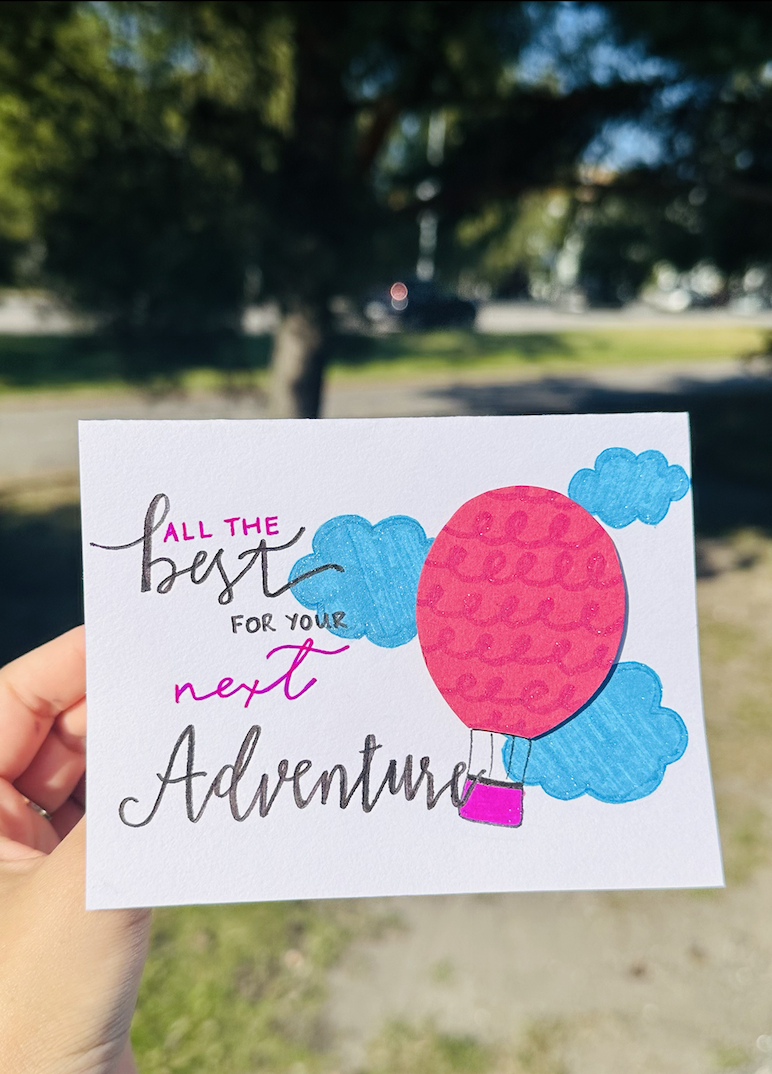 ALL THE
best
FOR YOUR
next
Adventure